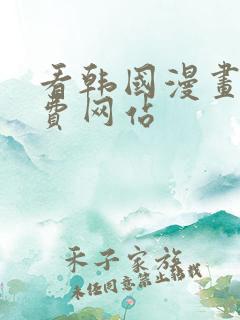 看韩國漫畫
費网站
禾子家族
未经同意禁止转载